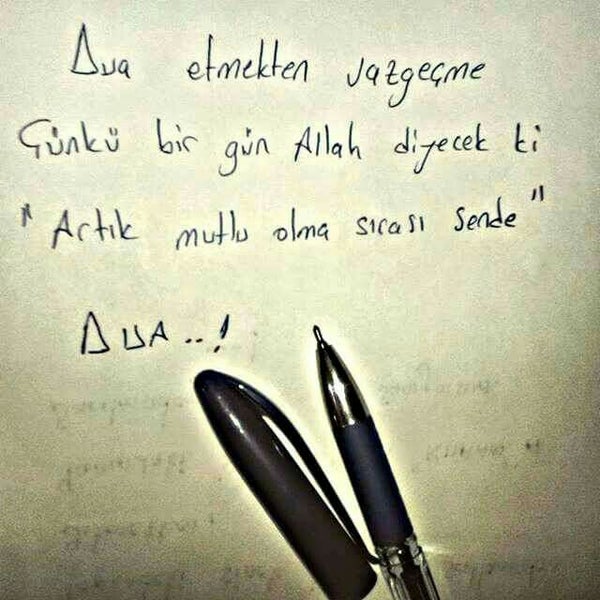 Dua etmekten vazgeçme
Çünkü bir gün Allah diyecek ki
"Artık mutlu olma sırası sende"
DUA..!